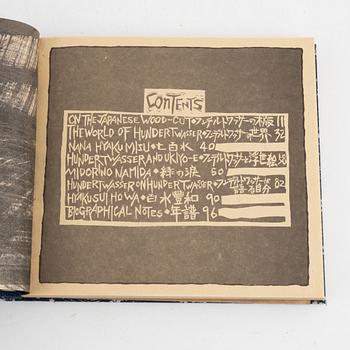 CONTENTS
ON THE JAPANESE WOOD-CUT・フンデルトワッサーの木版 11
THE WORLD OF HUNDERTWASSER・フンデルトワッサーの世界 32
NANA HYAKU MISU・七百水 40
HUNDERTWASSER AND UKIYO-E・フンデルトワッサーと浮世絵
MIDORI NO NAMIDA・緑の涙 60
HUNDERTWASSER ON HUNDERTWASSER・フンデルトワッサーは語る自分 82
HYAKUSUI HOWA・百水豊和 90
BIOGRAPHICAL NOTES・年譜 96